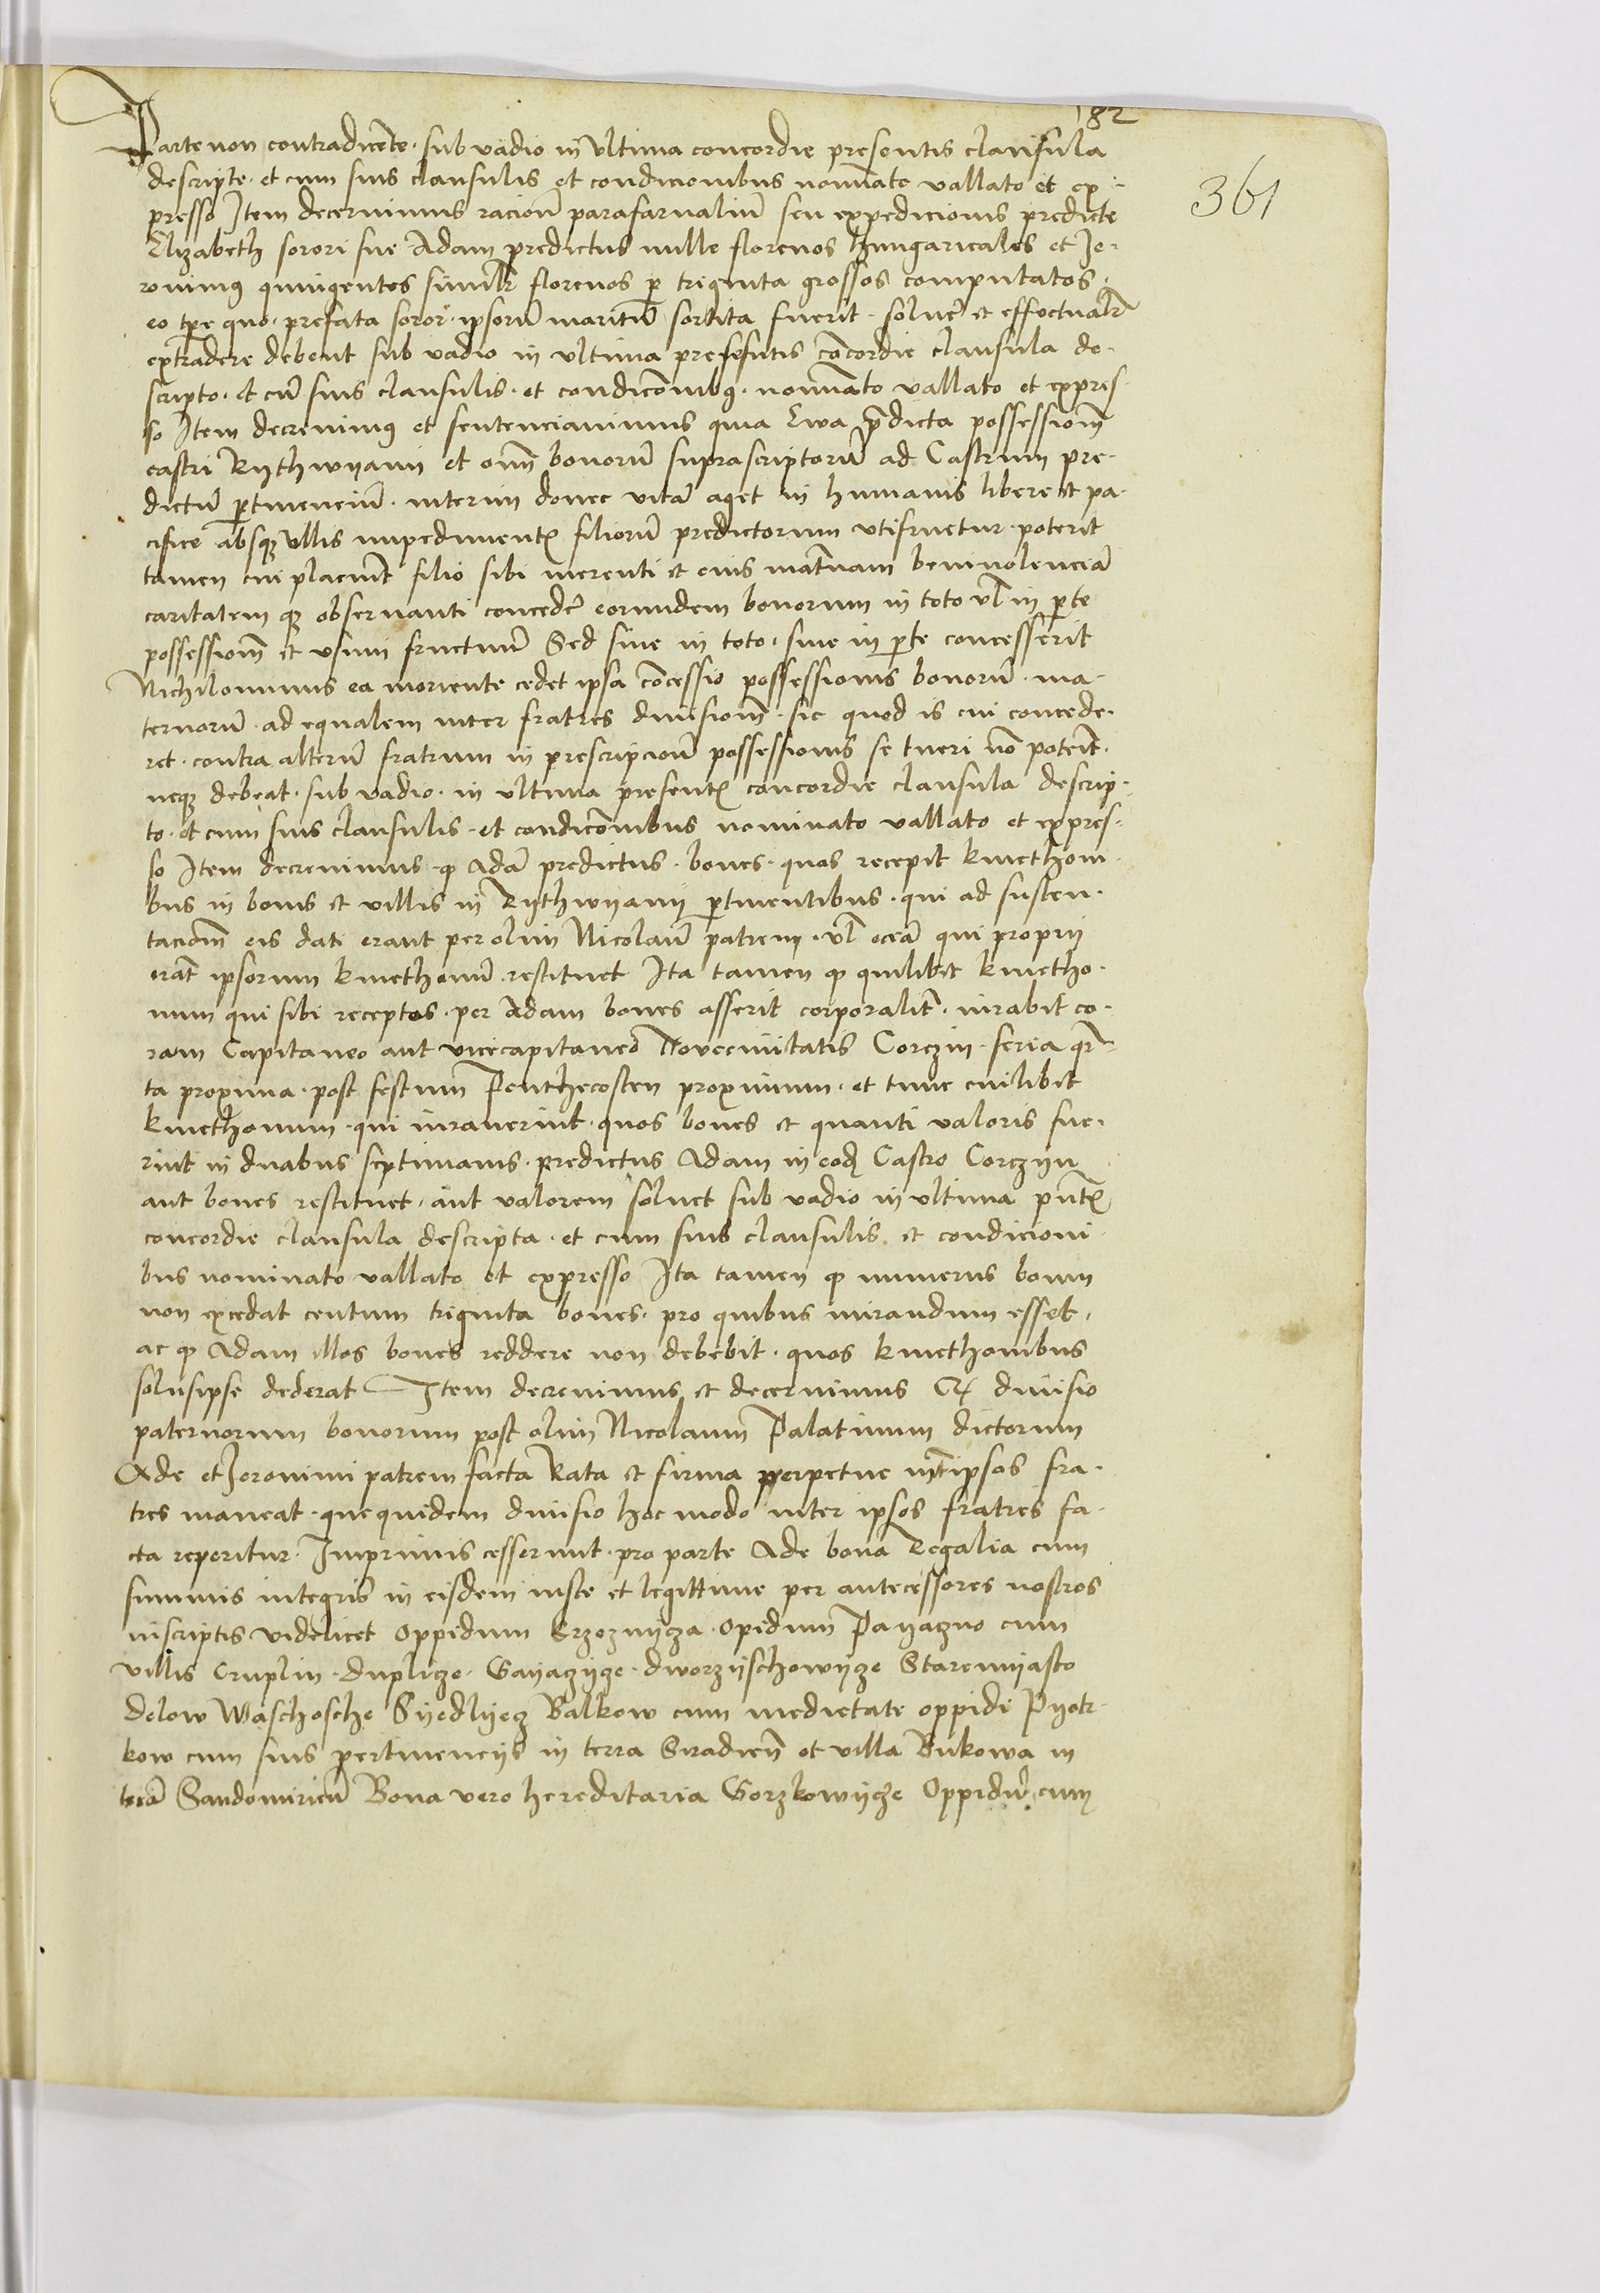 182
361
Parte non contradicente · sub vadio in ultima concordie presentis clausula
descripte · et cum suis clausulis et condicionibus nominato vallato et ex-
presso Item decernimus racione parafarnalium seu expedicionis predicte
Elizabeth sorori sue Adam predictus mille florenos hungaricales et Je-
ronimus quingentos similiter florenos per triginta grossos computatos ·
eo tempore quo · prefata soror · ipsorum maritum sortita fuerit · solvere et effectualiter
extradere debent sub vadio in ultima presentis concordie clausula de-
scripto · et cum suis clausulis · et condicionibus · nominato vallato et expres-
so Item decrevimus et sentenciavimus quia Ewa predicta possessionem
castri Rythwyani et omnium bonorum suprascriptorum ad Castrum pre-
dictum pertinencium · interim donec vitam aget in humanis libere et pa-
cifice absque ullis impedimentis filiorum predictorum utifruetur · poterit
tamen cui placuerit filio sibi merenti et eius maternam benivolenciam
caritatem que observanti concedere eorundem bonorum in toto vel in parte
possessionem et usum fructuum Sed sive in toto · sive in parte concesserit
Nichilominus ea moriente cedet ipsa concessio possessionis bonorum · ma-
ternorum · ad equalem inter fratres divisionem · sic quod is cui concede-
ret · contra alterum fratrum in prescripcione possessionis se tueri non poterit ·
neque debeat · sub vadio · in ultima presentis concordie clausula descrip-
to · et cum suis clausulis · et condicionibus nominato vallato et expres-
so Item decrevimus · quod Adam predictus · boves · quos recepit kmethoni-
bus in bonis et villis in Rythwyany pertinentibus · qui ad susten-
tacionem eis dati erant per olim Nicolaum patrem · vel eciam qui proprii
erant ipsorum kmethonum · restituet Ita tamen quod quilibet kmetho-
num qui sibi receptos · per Adam boves asserit corporaliter · iurabit co-
ram Capitaneo aut vicecapitaneo Novecivitatis Corczin · feria quar-
ta proxima · post festum Penthecosten proximum · et tunc cuilibet
kmethonum · qui iuraverint · quos boves et quanti valoris fue-
rint in duabus septimanis · predictus Adam in eodem Castro Corczyn
aut boves restituet · aut valorem solvet sub vadio in ultima presentis
concordie clausula descripta · et cum suis clausulis · et condicioni-
bus nominato vallato et expresso Ita tamen quod numerus boum
non excedat centum triginta boves · pro quibus iurandum esset ·
ac quod Adam illos boves reddere non debebit · quos kmethonibus
solusipse dederat Item decrevimus et decernimus Quod divisio
paternorum bonorum post olim Nicolaum Palatinum dictorum
Ade et Jeronimi patrem facta Rata et firma perpetue inter ipsos fra-
tres maneat · que quidem divisio hoc modo inter ipsos fratres fa-
cta reperitur · Imprimis cesserunt · pro parte Ade bona Regalia cum
summis integris in eisdem iuste et legittime per antecessores nostros
inscriptis videlicet Oppidum Brzeznycza · Opidum Payaczno cum
villis Cruplin · Duplicze · Gayaczycze · Dworzyschowycze Staremyasto
Delow Waschosche Syedlyecz Balkow cum medietate oppidi Pyotr-
kow cum suis pertinencys in terra Siradiensi et villa Bukowa in
terra Sandomiriensi Bona vero hereditaria Gorzkowycze Oppidum cum